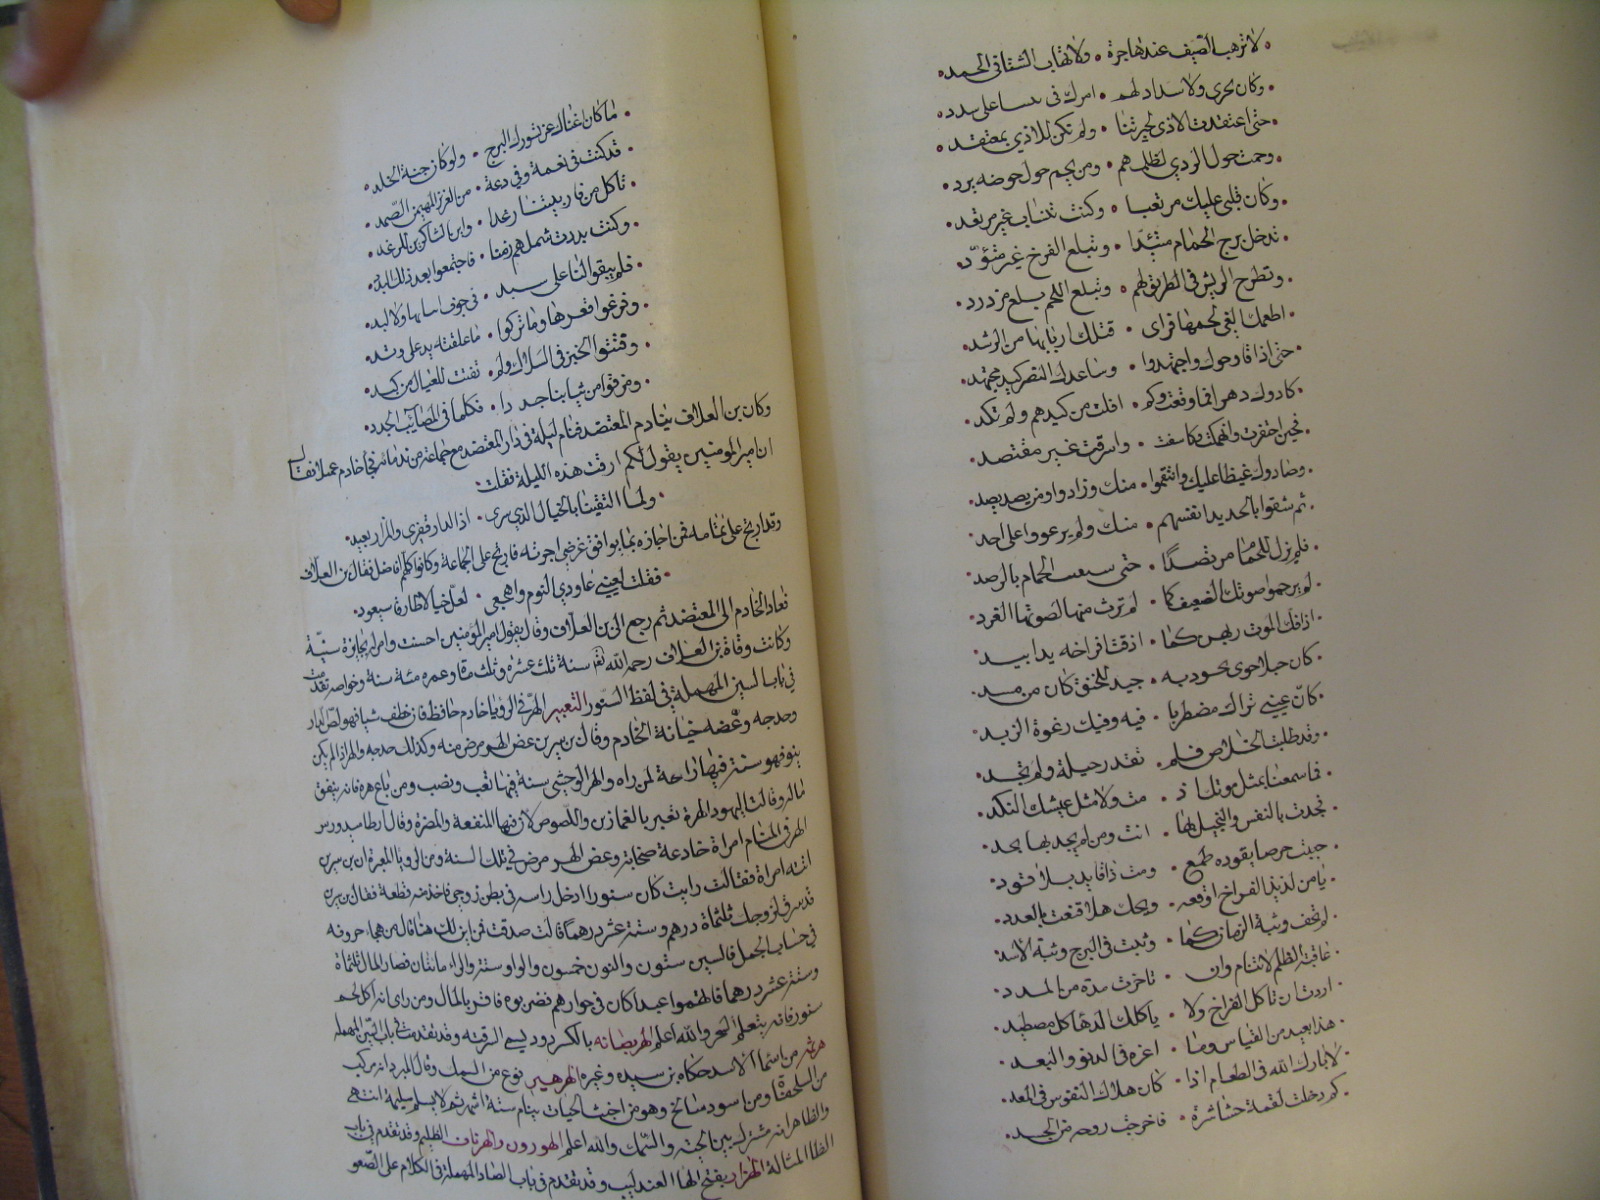 لا ترهب الصيف عند هاجرة • ولا تهاب الشتا في الجمد
وكان يجرى ولا سداد لهم • امرك في بيتنا على سدد
حتى اعتقدت الاذى لجيرتنا • ولم تكن للاذى بمعتقد
وحمت حول الردي لظلمهم • ومن يحم حول حوضه يرد
وكان قلبي عليك مرتعبا • وكنت تنساب غير مرتعد
تدخل برج الحمام متئدا • وتبلع الفرخ غير متؤد
وتطرح الريش في الطريق لهم • وتبلع اللحم بلع مزدرد
اطعمك الغي لحمها فراى • قتلك اربابها من الرشد
حتى اذا داوموك واجتهدوا • وساعد النصر كيد مجتهد
كادوك دهرا فما وقعت وكم • افلت من كيدهم ولم تكد
فحين اخفرت وانهمكت وكاشفت • واسرفت غير مقتصد
وصادوك غيظا عليك وانتقموا • منك وزادوا ومن يصد يصد
ثم شفوا بالحديد انفسهم • منك ولم يرعووا على احد
فلم يزل للحمام مرتصدا • حتى سقيت الحمام بالرصد
لم يرحموا صوتك الضعيف كما • لم ترث منها لصوتها الغرد
اذاقك الموت ربهن كما • اذقت افراخه يدا بيد
كان حبلا حوى بجودته • جيدك للخنق كان من مسد
كان عيني تراك مضطربا • فيه وفي فيك رغوة الزبد
وقد طلبت الخلاص فلم • تقدر حيلة ولم تجد
فما سمعنا بمثل موتك اذ • مت ولا مثل عيشك النكد
فجدت بالنفس والبخيل بها • انت ومن لم يجد بها يجد
عشت حريصا يقوده طمع • ومت ذا قاتل بلا قود
يا من لذيذ الفراخ اوقعه • ويحك هلا قنعت بالغدد
لم تخف وثبة الزمان كما • وثبت في البرج وثبة الاسد
عاقبة الظلم لا تنام وان • تاخرت مدة من المدد
اردت ان تاكل الفراخ ولا • ياكلك الدهر اكل مضطهد
هذا بعيد من القياس وما • اعزه في الدنو والبعد
لا بارك الله في الطعام اذا • كان هلاك النفوس في المعد
كم دخلت لقمة حشا شره • فاخرجت روحه من الجسد
ما كان اغناك عن تسورك البرج • ولو كان جنة الخلد
قد كنت في نعمة وفي دعة • من العزيز المهيمن الصمد
تاكل من فار بيتنا رغدا • واين بالشاكرين للرغد
وكنت بددت شملهم زمنا • فاجتمعوا بعد ذلك البدد
فلم يبقوا لنا على سبد • في جوف ابياتها ولا لبد
وفرغوا قعرها وما تركوا • ما علقته يد على وتد
وفتتوا الخبز في السلال ولم • تفتت للعيال من كبد
ومزقوا من ثيابنا جددا • فكلنا في المصايب الجدد
وكان بن العلاف ينادم المعتضد فنام ليلة في دار المعتضد مع جماعة من ندمائه فجا خادم عجلا فقال
ان امير المومنين يقول لكم ارقت هذه الليلة فقلت
ولما انتبهنا بالخيال الذي سرى • اذا الدار قفرى والمزار بعيد
وقد ارتج على تمامه فمن اجازه بما يوافق غرضي اجزته فارتج على الجماعة وكانوا كلهم افاضل فقال بن العلاف
فقلت لعيني عاودي النوم واهجعي • لعل خيالا طارقا سيعود
فعاد الخادم الى المعتضد ثم رجع الى بن العلاف وقال يقول امير المؤمنين احسنت وامر له بجايزة سنية
وكانت وفاة بن العلاف رحمه الله تعالى سنة ثلث عشرة وثلث مائة وعمره مئة سنة وخواصه تقدمت
في باب السين المهملة في لفظ السنور التعبير الهر في الرؤيا خادم حافظ فان خطف شيا فهو لص الدار
وخدشه وعضه خيانة الخادم وقال بن سيرين عض الهر مرض سنة وكذلك خدشه والهر اذا لم يكن
ينو فهو سنة فيها راحة لمن راه والهر الوحشي سنة فيها تعب ونصب ومن باع هرة فانه ينفق
ماله وقالت اليهود الهرة تعبر بالغمازين واللصوص لان فيها المنفعة والمضرة وقال ارطاميدورس
الهر في المنام امراة خادعة صخابة وعض الهر مرض في تلك السنة ومن الرويا المعبرة ان بن سيرين
اتته امراة فقالت رايت كان سنورا ادخل راسه في بطن زوجي فاخذ منه قطعة فقال بن سيرين
قد سرق لزوجك ثلثماة درهم وستة عشر درهما قالت صدقت فمن اين لك هذا قال من هجاء حروفه
في حساب الجمل فالسين ستون والنون خمسون والواو ستة والراء مائتان فصار المال ثلثماة
وستة عشر درهما فاتهموا عبدا كان في جوارهم فضربوه فاقر بالمال ومن راى انه اكل لحم
سنور فانه يتعلم السحر والله اعلم الهرنصانة بالكسر دود يسمى السرفة وقد تقدمت في باب السين المهملة
هرثمة من اسما الاسد حكاه بن سيده وغيره الهرهير نوع من السمك وقال المبرد انه مركب
من السلحفاة ومن اسود سالخ وهو من اخبث الحيات ينام ستة اشهر ثم لا يسلم سليمه انتهى
والظاهر انه مشترك بين الحية والسمك والله اعلم الهورون والهرثاف الظليم وقد تقدم في باب
الظا المشالة الهزار بفتح الها العندليب وقد تقدم في باب الصاد المهملة في الكلام على الصعو